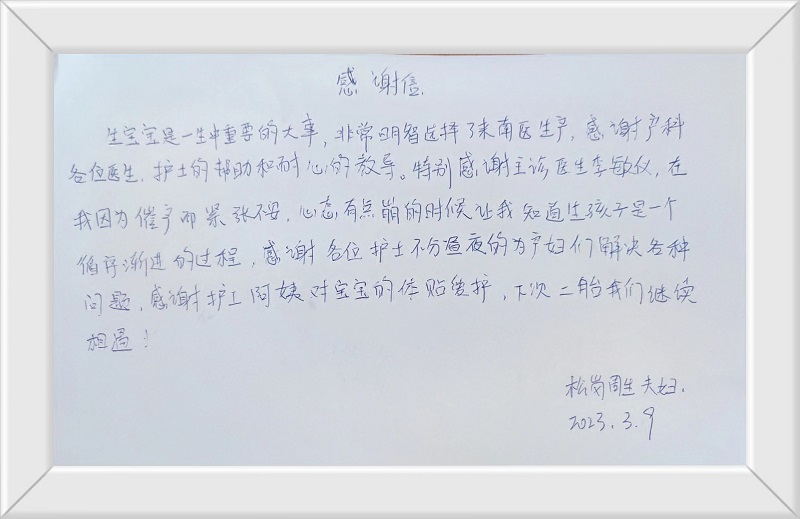 感谢信
生宝宝是一生中重要的大事，非常明智选择了来南医生产，感谢产科
各位医生，护士的帮助和耐心的教导。特别感谢主诊医生李敏仪，在
我因为催产而紧张不安，心态有点崩的时候让我知道生孩子是一个
循序渐进的过程，感谢各位护士不分昼夜的为产妇们解决各种
问题，感谢护工阿姨对宝宝的体贴爱护，下次二胎我们继续
相遇！
松岗周生夫妇.
2023.3.9